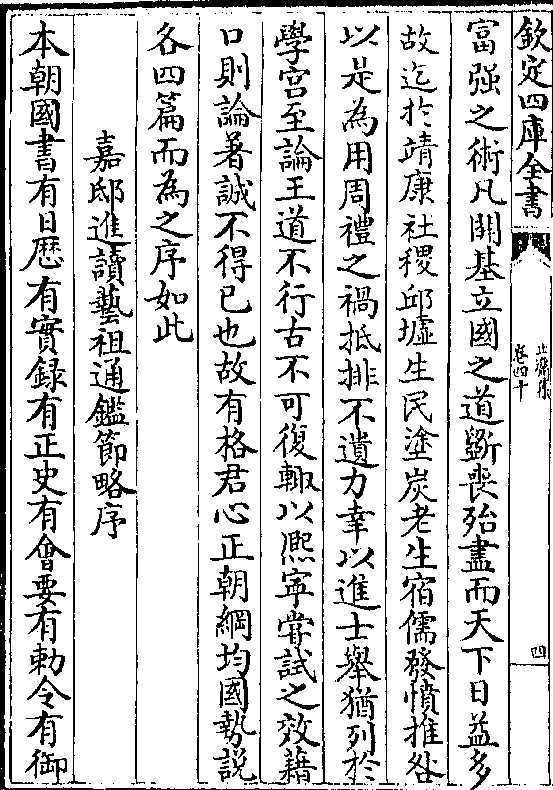 欽定四庫全書
止齋集
卷四十
四
富强之術凡開基立國之道斵喪殆盡而天下日益多
故迄於靖康社稷邱墟生民塗炭老生宿儒發憤推咎
以是為用周禮之禍抵排不遺力幸以進士舉猶列於
學宫至論王道不行古不可復輙以熈寧嘗試之效藉
口則論著誠不得已也故有格君心正朝綱均國勢說
各四篇而為之序如此
嘉邸進讀藝祖通鑑節略序
本朝國書有日厯有實録有正史有㑹要有勅令有御